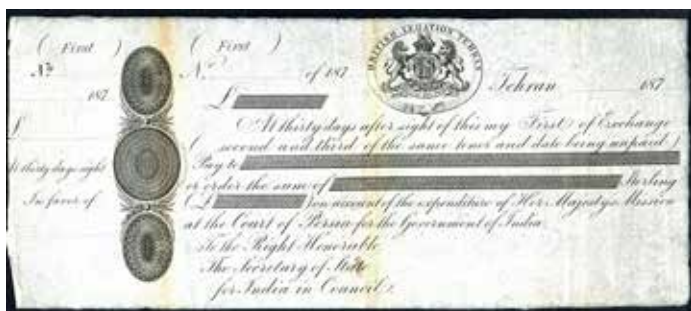 ( First )
No
187
£
At thirty days sight
In favor of
( First )
No of 187
£
BRITISH LEGATION TEHRAN
Tehran 187
At thirty days after sight of this my First of Exchange
( second and third of the same tenor and date being unpaid )
Pay to
or order the sum of Sterling
(£ ) on account of the expenditure of Her Majestys Mission
at the Court of Persia for the Government of India
To the Right Honorable
The Secretary of State
for India in Council